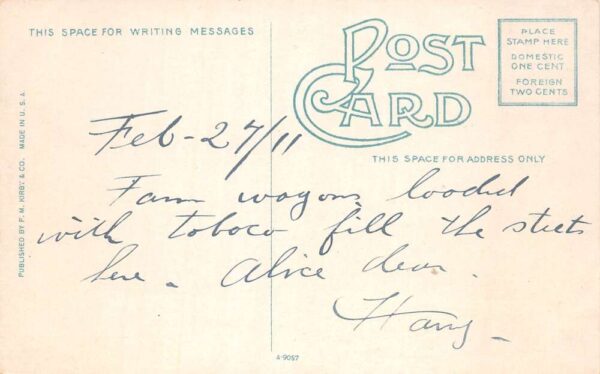 THIS SPACE FOR WRITING MESSAGES
POST
CARD
PLACE
STAMP HERE
DOMESTIC
ONE CENT
FOREIGN
TWO CENTS
THIS SPACE FOR ADDRESS ONLY
PUBLISHED BY P. M. KIRBY & CO. MADE IN U. S. A.
Feb-27/11
Farm wagons loaded
with toboco fill the steets
here - Alice dear.
Harry-
A-9057